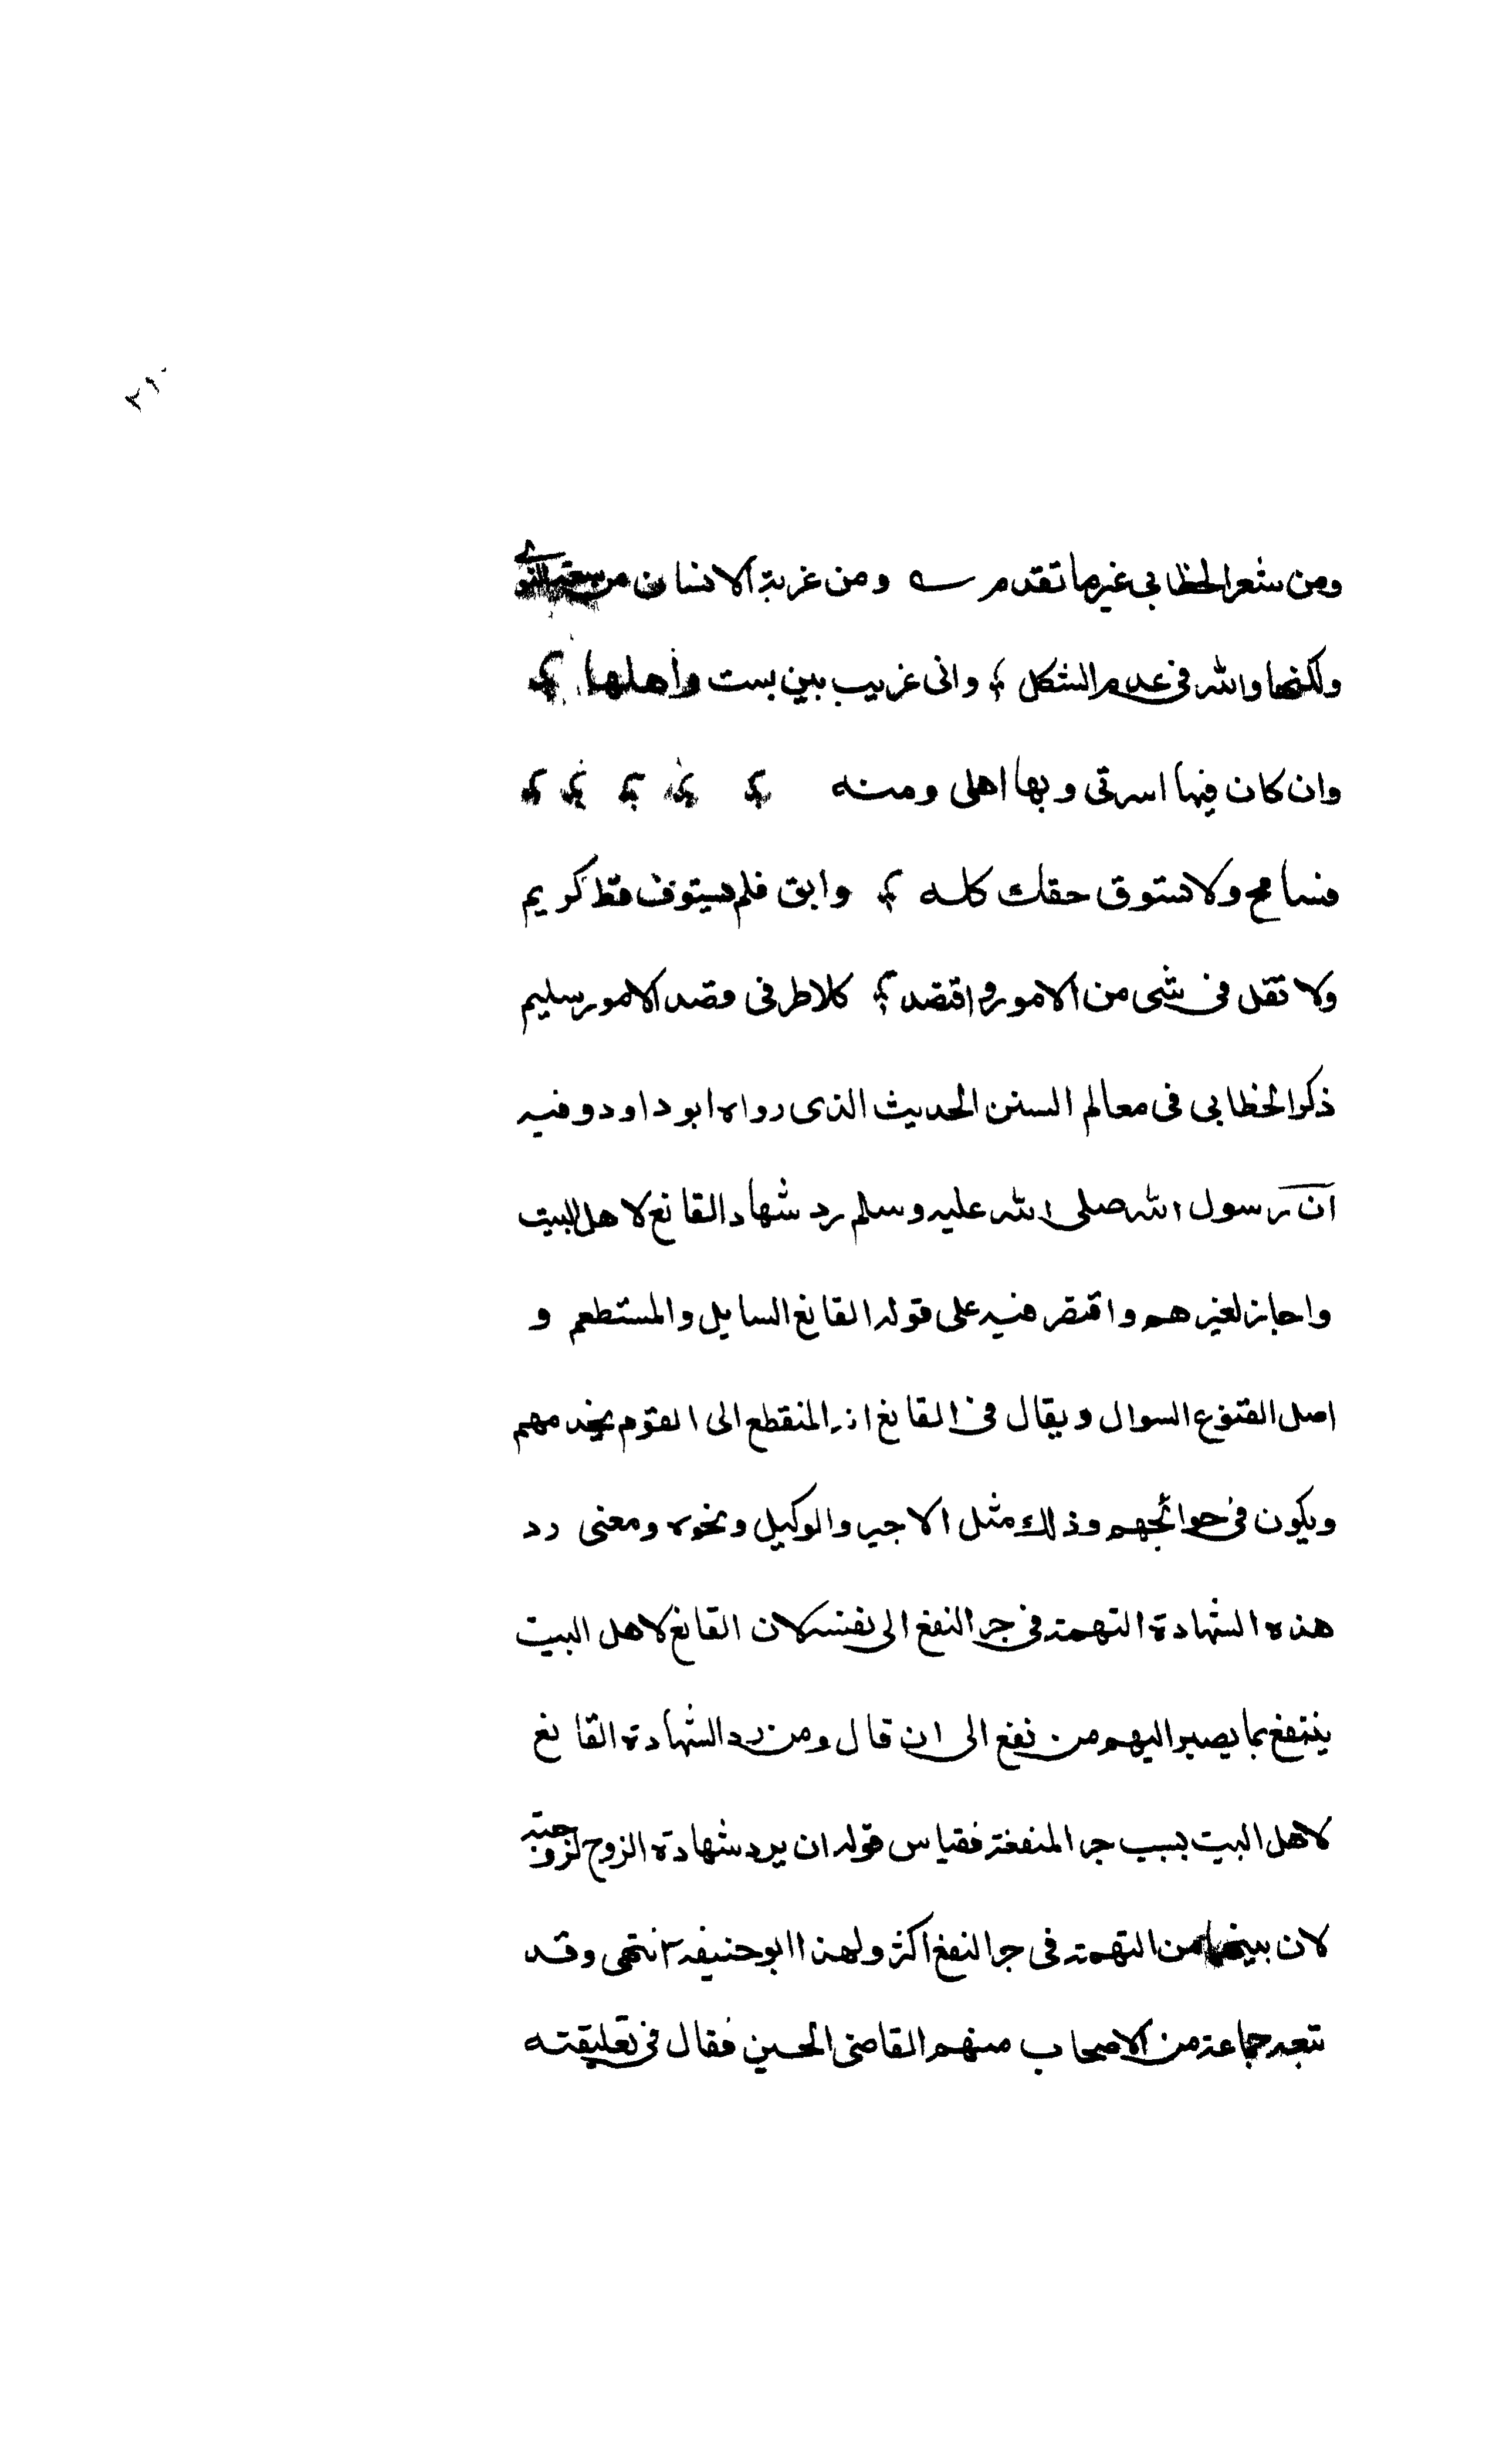 ٢١٠
ومن شعر الخطابي غير ما تقدم ومن غربة الانسان من
ولكنها والله في عدم الشكل ؛ واني غريب بين بست واهلها ؛
وان كان فيها اسرتي وبها اهلى ومنه ؛ ؛ ؛ ؛ ؛
فسامح ولا تستوف حقك كله ؛ وابق فلم يستوف قط كريم
ولا تغل في شى من الامور واقتصد ؛ كلا طرفى قصد الامور سليم
ذكر الخطابي في معالم السنن الحديث الذى رواه ابو داود وفيه
ان رسول الله صلى الله عليه وسلم رد شهاد القانع لاهل البيت
واجاز لغيرهم واقتصر فيه على قوله القانع السايل والمستطعم و
اصل القنوع السوال ويقال في القانع انه المنقطع الى القوم يخدمهم
ويكون في حوائجهم وذلك مثل الاجير والوكيل ونحوه ومعنى رد
هذه الشهادة التهمة في جر النفع الى نفسه لان القانع لاهل البيت
ينتفع بما يصير اليهم من نفع الى ان قال ومن رد الشهادة القانع
لاهل البيت بسبب جر المنفعة فقياس قوله ان يرد شهادة الزوج لزوجته
لان بينهما من التهمة في جر النفع اكثر ولهذا ابو حنيفة انتهى وقد
تبعه جماعة من الاصحاب منهم القاضى الحسين فقال في تعليقته